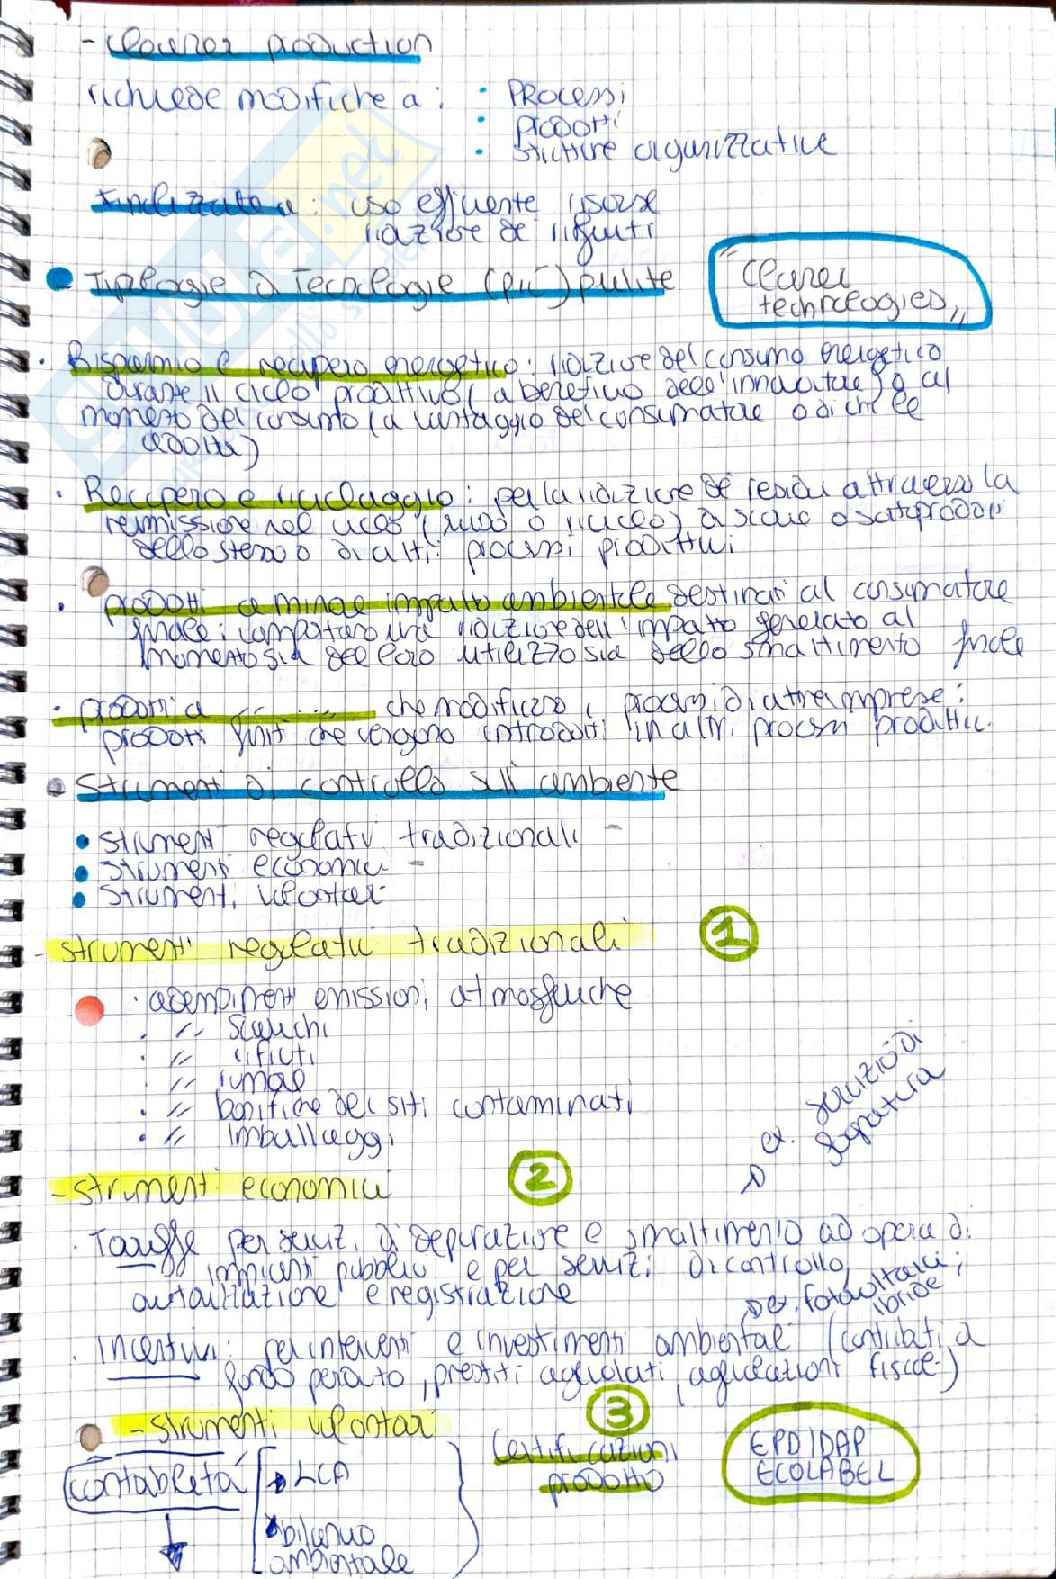 - Cleaner production
richiede modifiche a : • PROCESSI
• prodotti
• strutture organizzative
finalizzate a : uso efficiente risorse
riduzione dei rifiuti
Tipologie di Tecnologie (più) pulite
"Cleaner
technologies"
• Risparmio e recupero energetico : riduzione del consumo energetico
durante il ciclo produttivo (a beneficio dell'innovatore) o al
momento del consumo (a vantaggio del consumatore o di chi le
adotta)
• Recupero e riciclaggio : per la riduzione dei residui attraverso la
reimmissione nel ciclo (riuso o riciclo) di scarti o sottoprodotti
dello stesso o di altri processi produttivi
• prodotti a minore impatto ambientale destinati al consumatore
finale : comportano una riduzione dell'impatto generato al
momento sia del loro utilizzo sia dello smaltimento finale
• prodotti che modificano i processi di altre imprese :
prodotti finiti che vengono introdotti in altri processi produttivi.
Strumenti di controllo sull'ambiente
• strumenti regolativi tradizionali -
• strumenti economici -
• strumenti volontari
- strumenti regolativi tradizionali 1
• adempimenti emissioni atmosferiche
• " scarichi
• " rifiuti
• " rumore
• " bonifiche dei siti contaminati
• " imballaggi
ex. servizio di
fognatura
- strumenti economici 2
• Tariffe per servizi di depurazione e smaltimento ad opera di
impianti pubblici e per servizi di controllo,
autorizzazione e registrazione
es. fotovoltaici;
ibride
• Incentivi : per interventi e investimenti ambientali (contributi a
fondo perduto, prestiti agevolati, agevolazioni fiscali)
- strumenti volontari 3
Contabilità
• LCA
• bilancio
ambientale
Certificazioni
prodotto
EPD IDAP
ECOLABEL